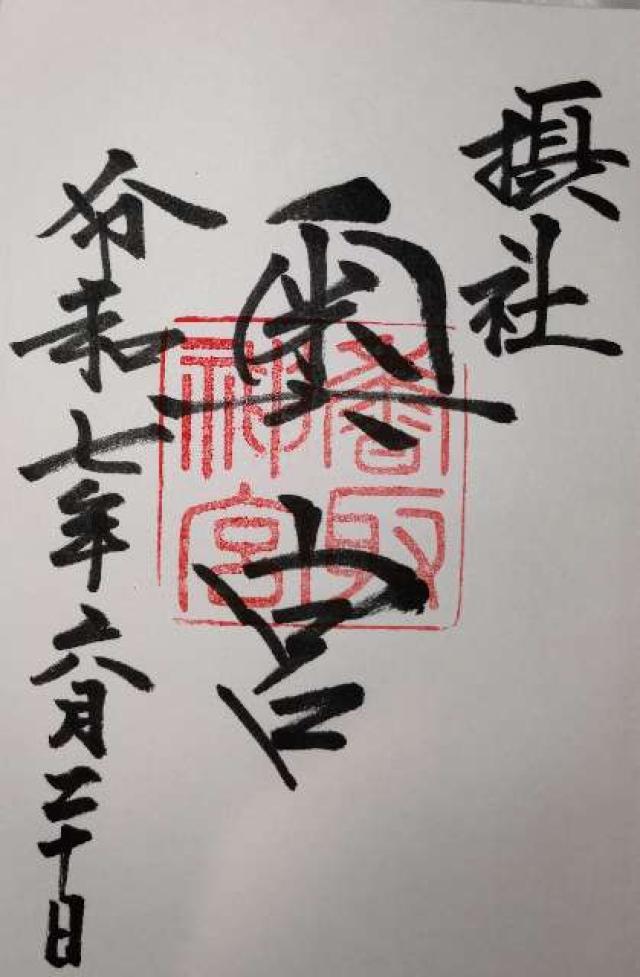 摂社
奥宮
香取
神宮
令和七年六月二十日